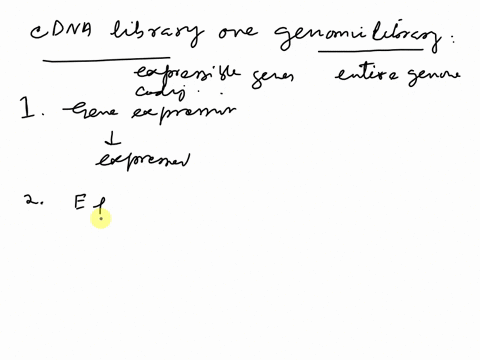 cDNA library one genomic library :
expressible genes entire genome
coding . .
1. Gene expression
↓
expressed
2. E f